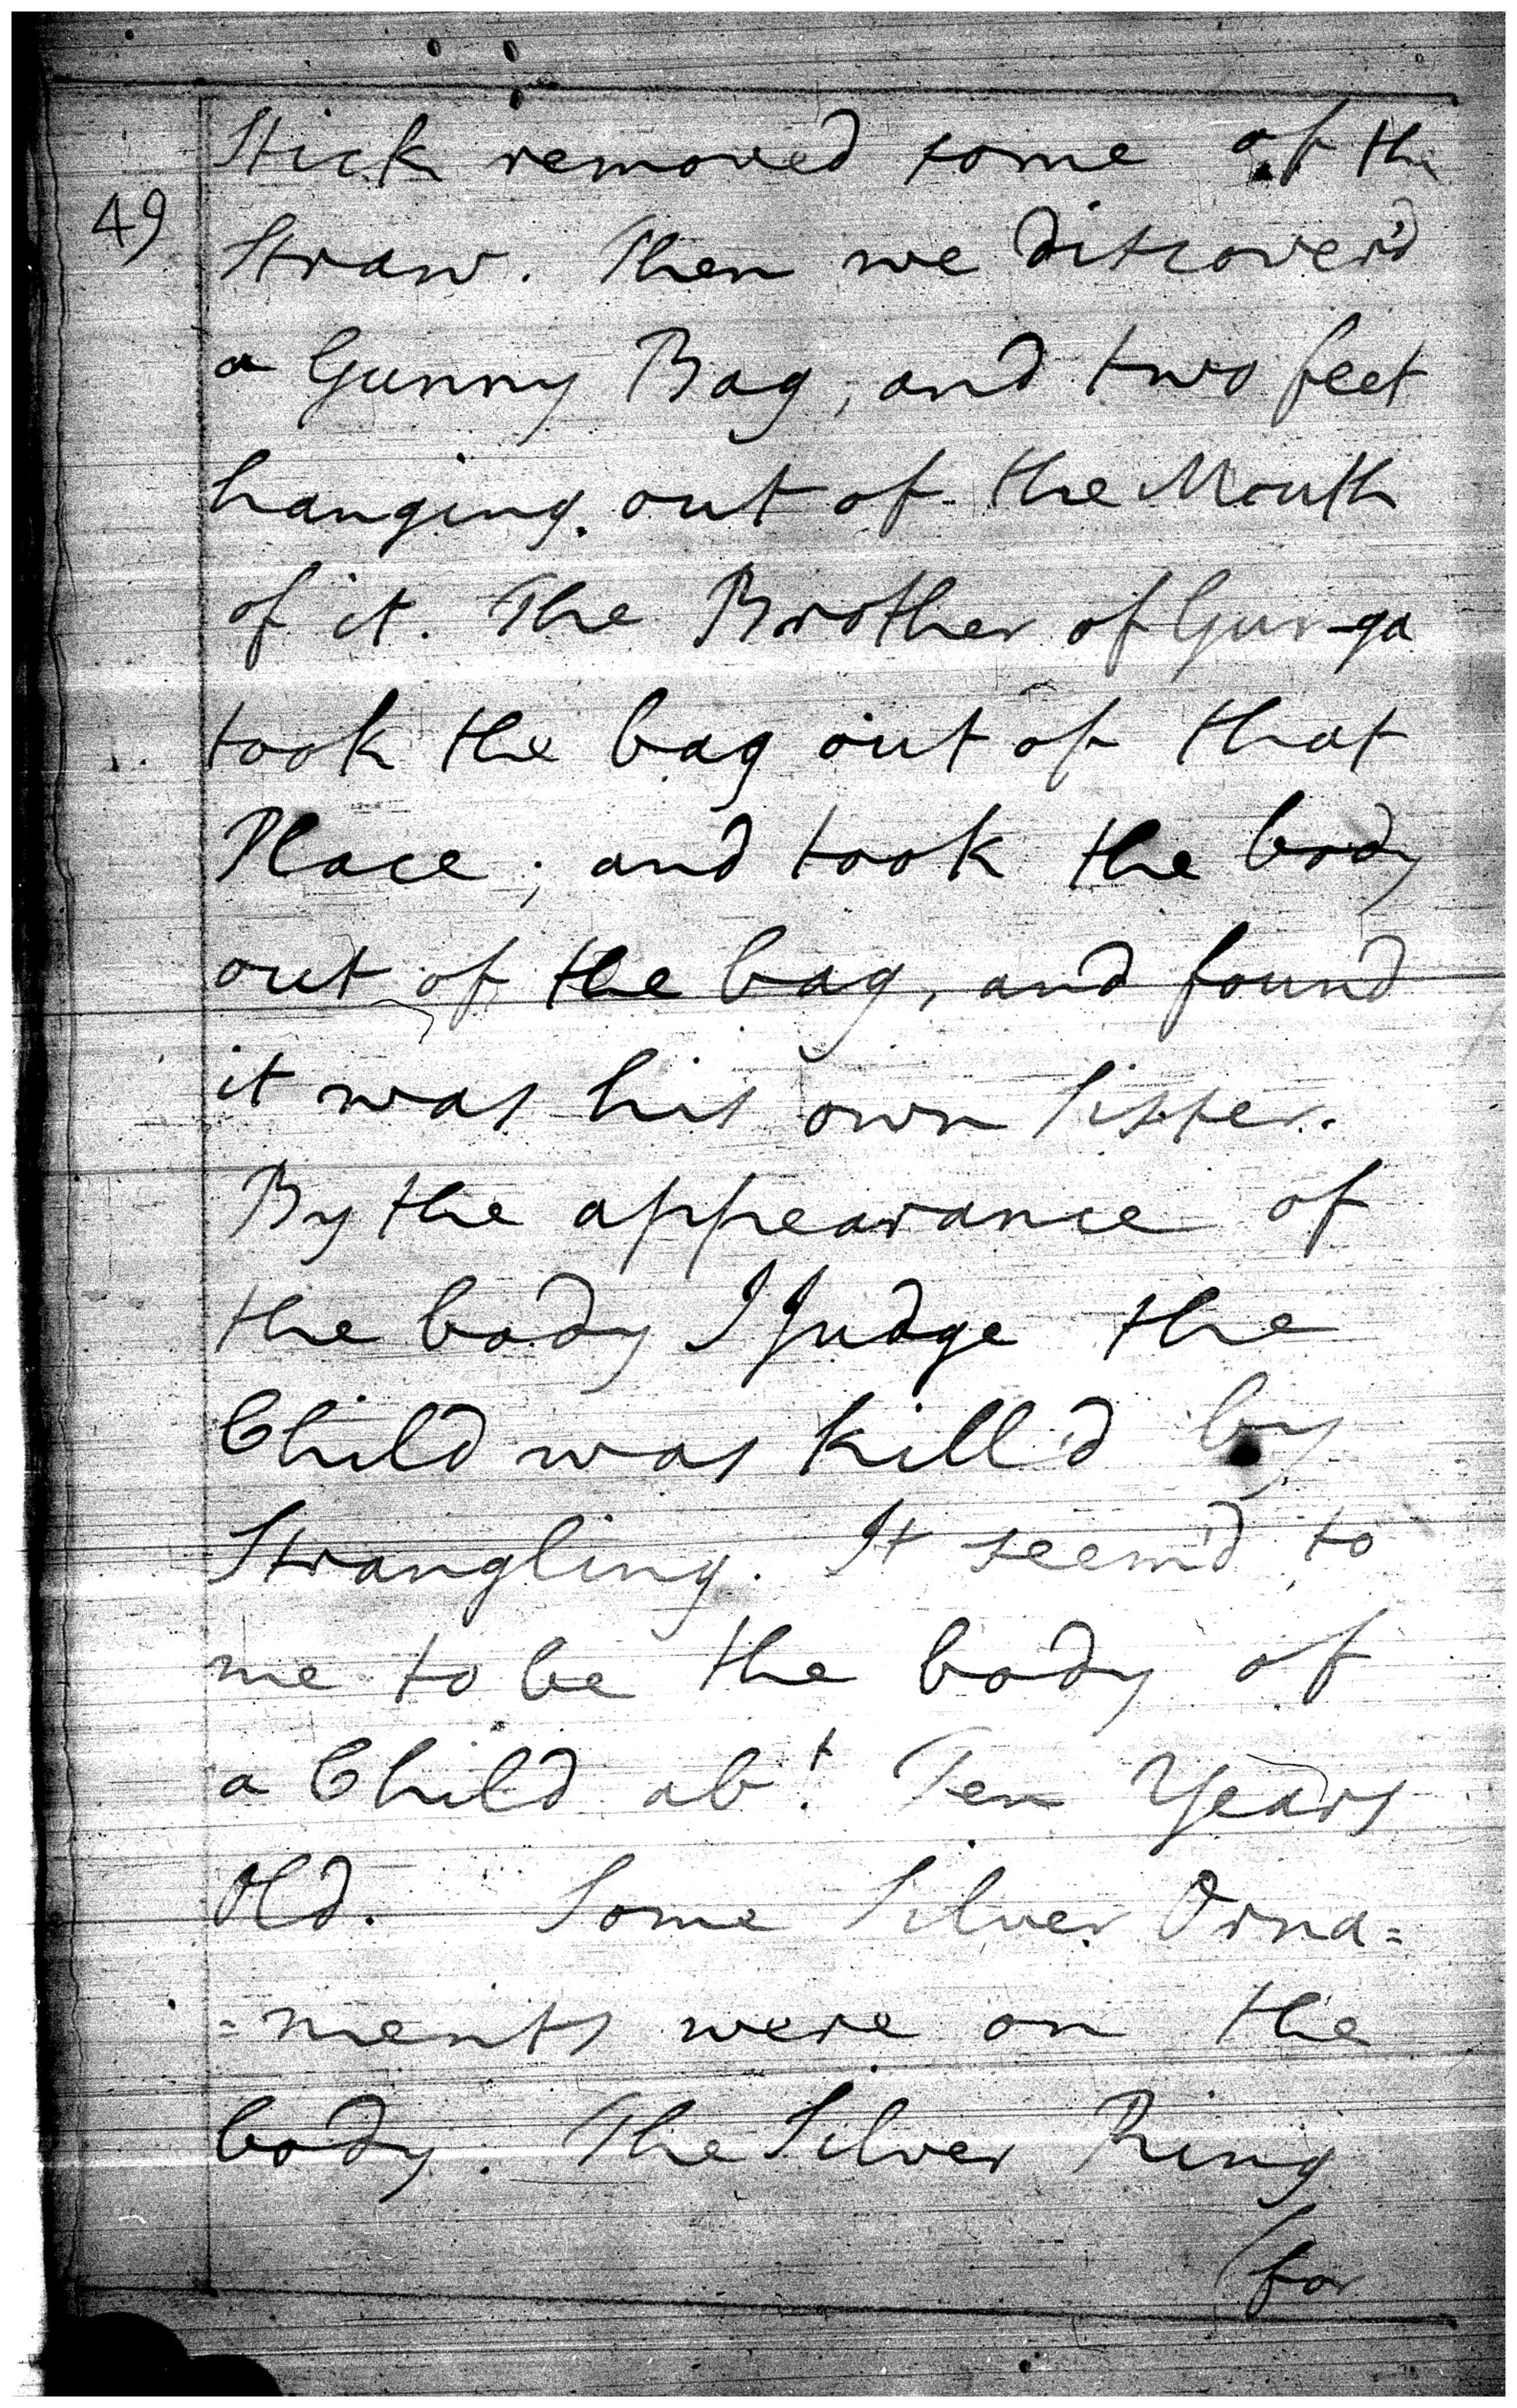 Stick removed some of the
49
Straw. Then we discover'd
a Gunny Bag, and two feet
hanging out of the Mouth
of it. The Brother of Gunga
took the bag out of that
Place; and took the body
out of the bag, and found
it was his own Sister.
By the appearance of
the body I Judge the
Child was kill'd by
Strangling. It seem'd to
me to be the body of
a Child abt. Ten Years
Old. Some Silver Orna=
=ments were on the
body. The Silver Ring
for